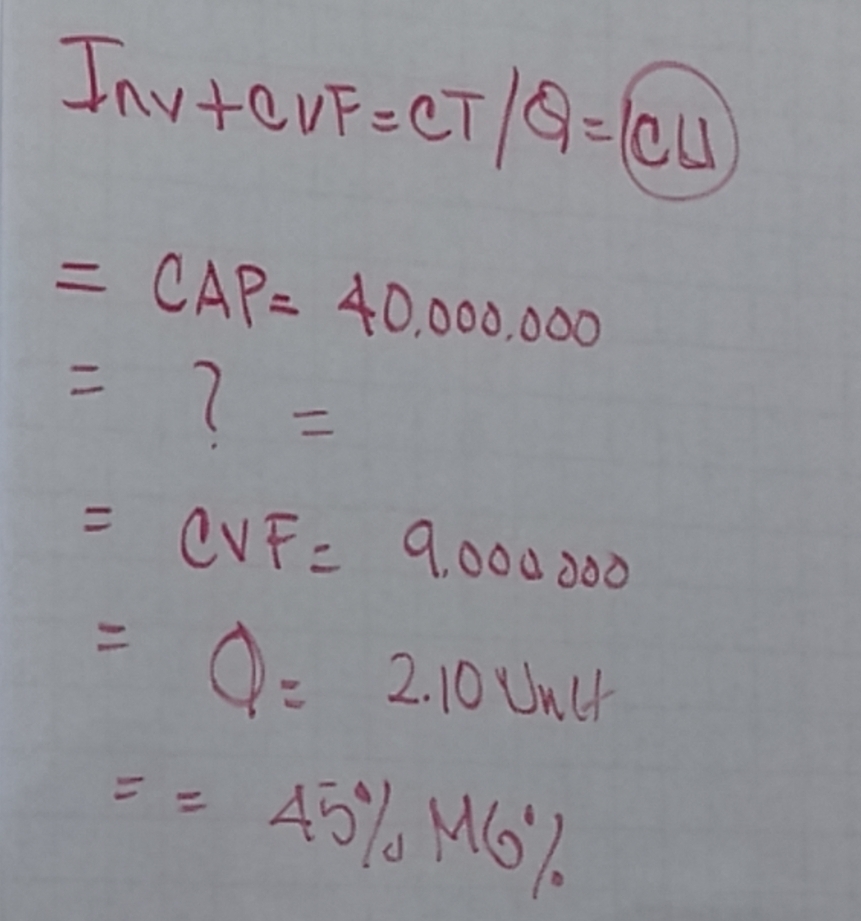 Inv+CVF=CT/Q=CU
= CAP= 40.000.000
= ? =
= CVF= 9.000000
= Q= 2.10 Unit
= = 45% MG%